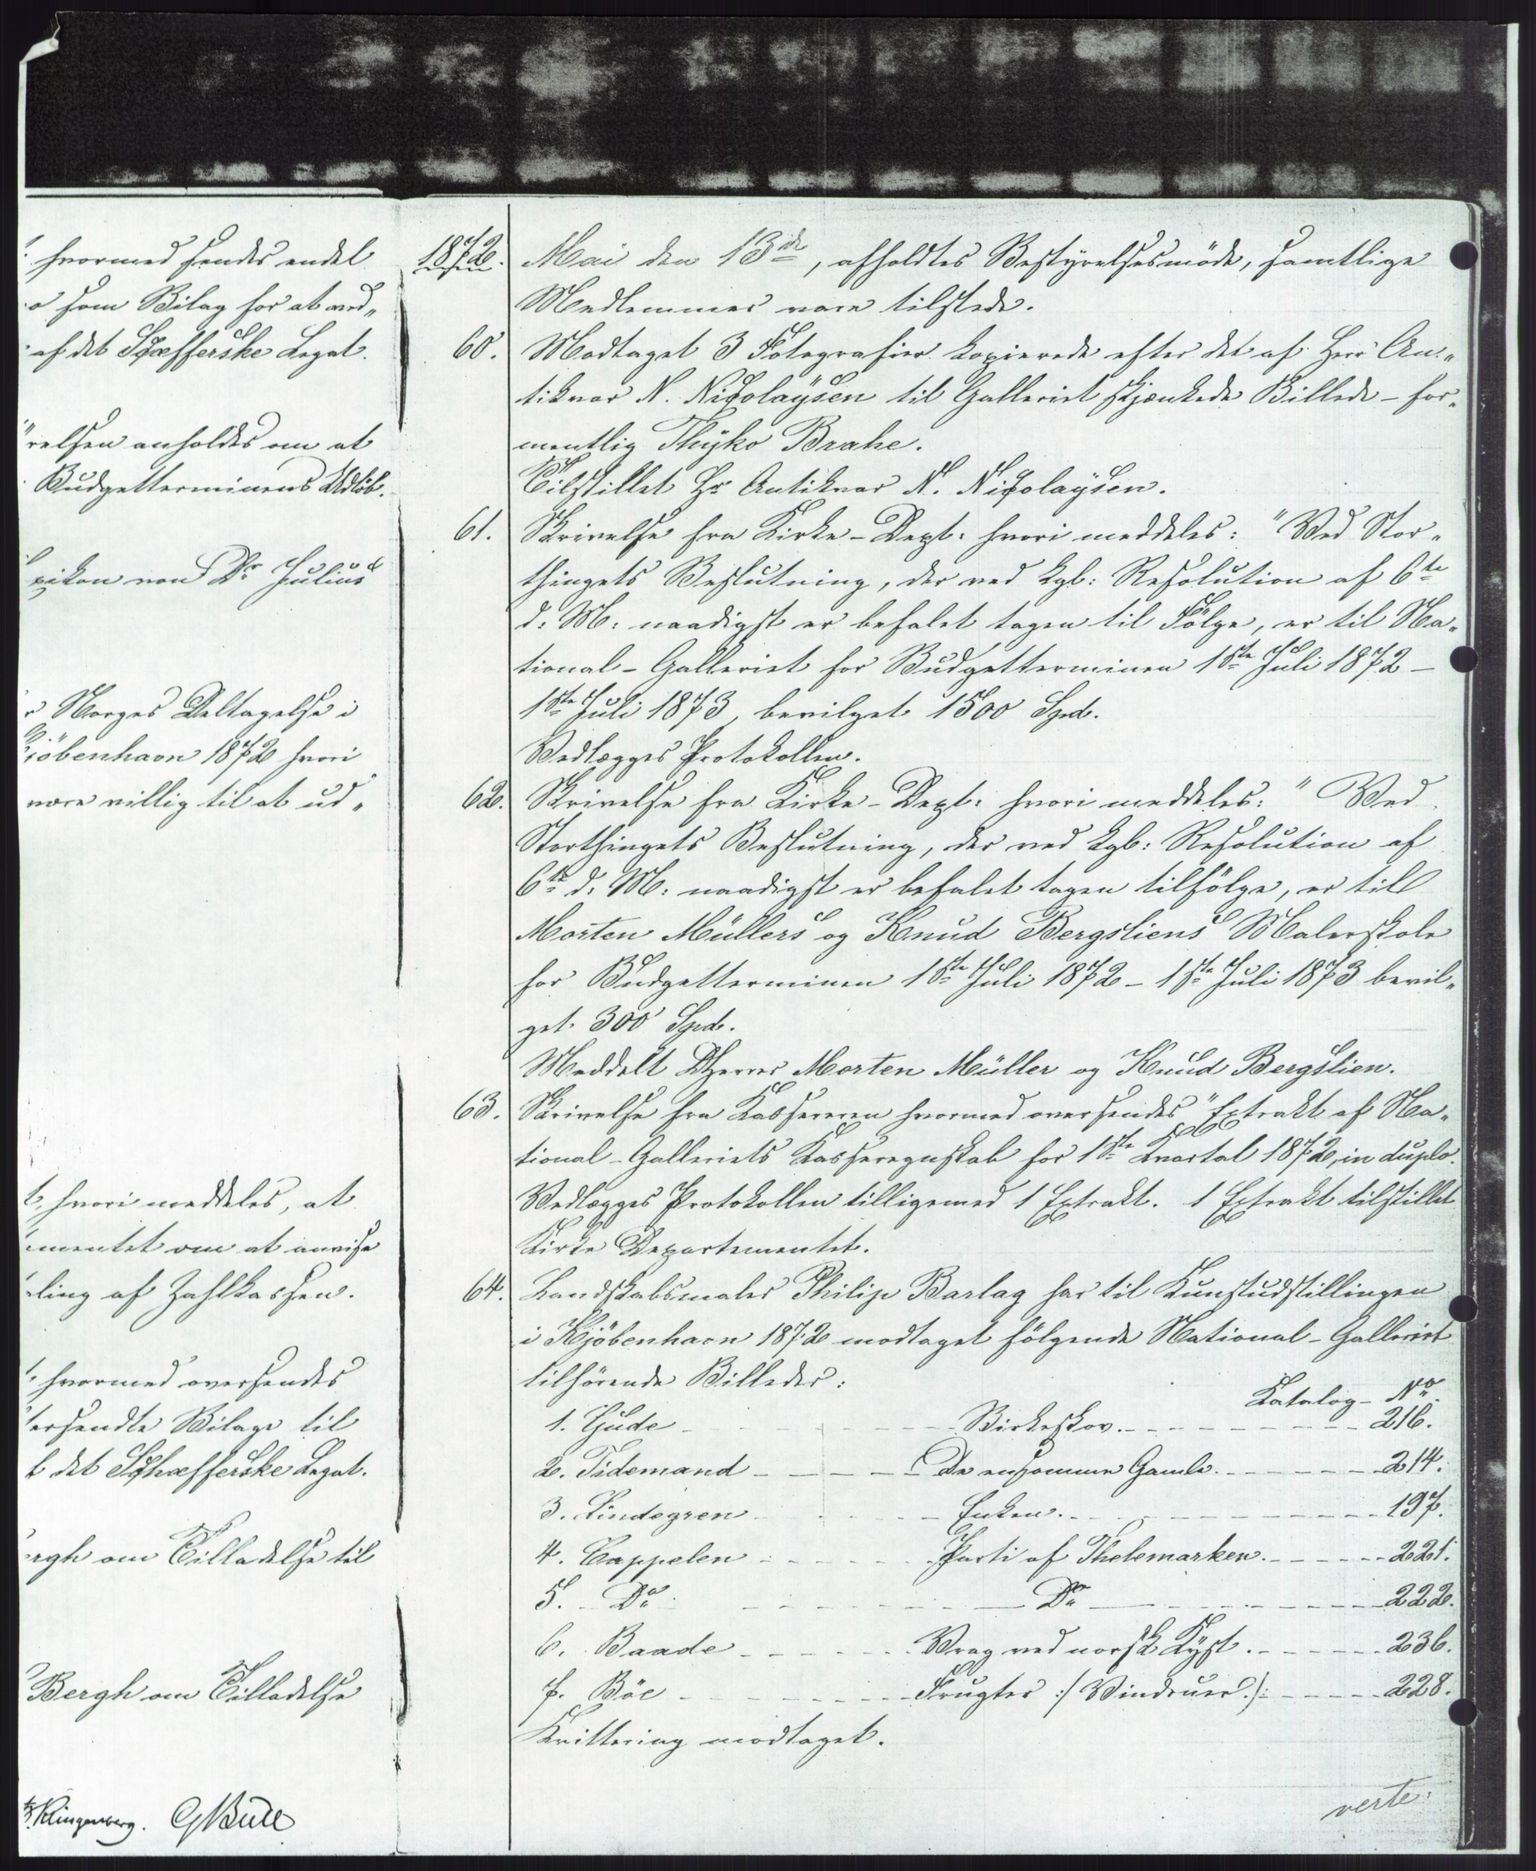 hvormed sendes endel
som Bilag for at ved-
af det Schæfferske Legat.
relsen anholdes om at
Budgetterminens Udløb.
xikon von Dr Julius
Norges Deltagelse i
Kjöbenhavn 1872 hvori
være villig til at ud-
hvori meddeles, at
ementet om at anvise
ling af Zahlkassen.
hvormed oversendes
tersendte Bilage til
det Schæfferske Legat.
ergh om Tilladelse til
Bergh om Tilladelse
Klingenberg. G Bull
1872. Mai den 13de, afholdtes Bestyrelsesmöde, samtlige
Medlemmer vare tilstede.
60. Modtaget 3 Fotografier kopierede efter det af Herr An-
tikvar N. Nicolaysen til Galleriet skjænkede Billede – for-
mentlig Thyko Brahe.
Tilstillet Hr Antikvar N. Nicolaysen.
61. Skrivelse fra Kirke-Dept: hvori meddeles: "Ved Stor-
thingets Beslutning, der ved kgl: Resolution af 6te
d: M: naadigst er befalet tagen til Fölge, er til Na-
tional-Galleriet for Budgetterminen 1ste Juli 1872 –
1ste Juli 1873, bevilget 1500 Spd.
Vedlægges Protokollen.
62. Skrivelse fra Kirke-Dept: hvori meddeles: "Ved
Storthingets Beslutning, der ved kgl: Resolution af
6te d: M: naadigst er befalet tagen tilfölge, er til
Morten Müllers og Knud Bergsliens Malerskole
for Budgetterminen 1ste Juli 1872 – 1ste Juli 1873 bevil-
get 300 Spd.
Meddelt DHerrer Morten Müller og Knud Bergslien.
63. Skrivelse fra Kassereren hvormed oversendes "Extrakt af Na-
tional-Galleriets Kasseregnskab for 1ste Kvartal 1872, in duplo.
Vedlægges Protokollen tilligemed 1 Extrakt. 1 Extrakt tilstillet
Kirke Departementet.
64. Landskabsmaler Philip Barlag har til Kunstudstillingen
i Kjöbenhavn 1872 modtaget fölgende National-Galleriet
tilhörende Billeder:
Katalog-No.
1. Gude – Birkeskov. – 216.
2. Tidemand – De ensomme Gamle. – 214.
3. Lindegren – Enken. – 197.
4. Cappelen – Parti af Thelemarken. – 221.
5. Do – Do – 222.
6. Baade – Vrag ved norsk Kyst. – 236.
7. Böe – Frugter :/ Vindruer./: – 228.
Kvittering modtaget.
verte.